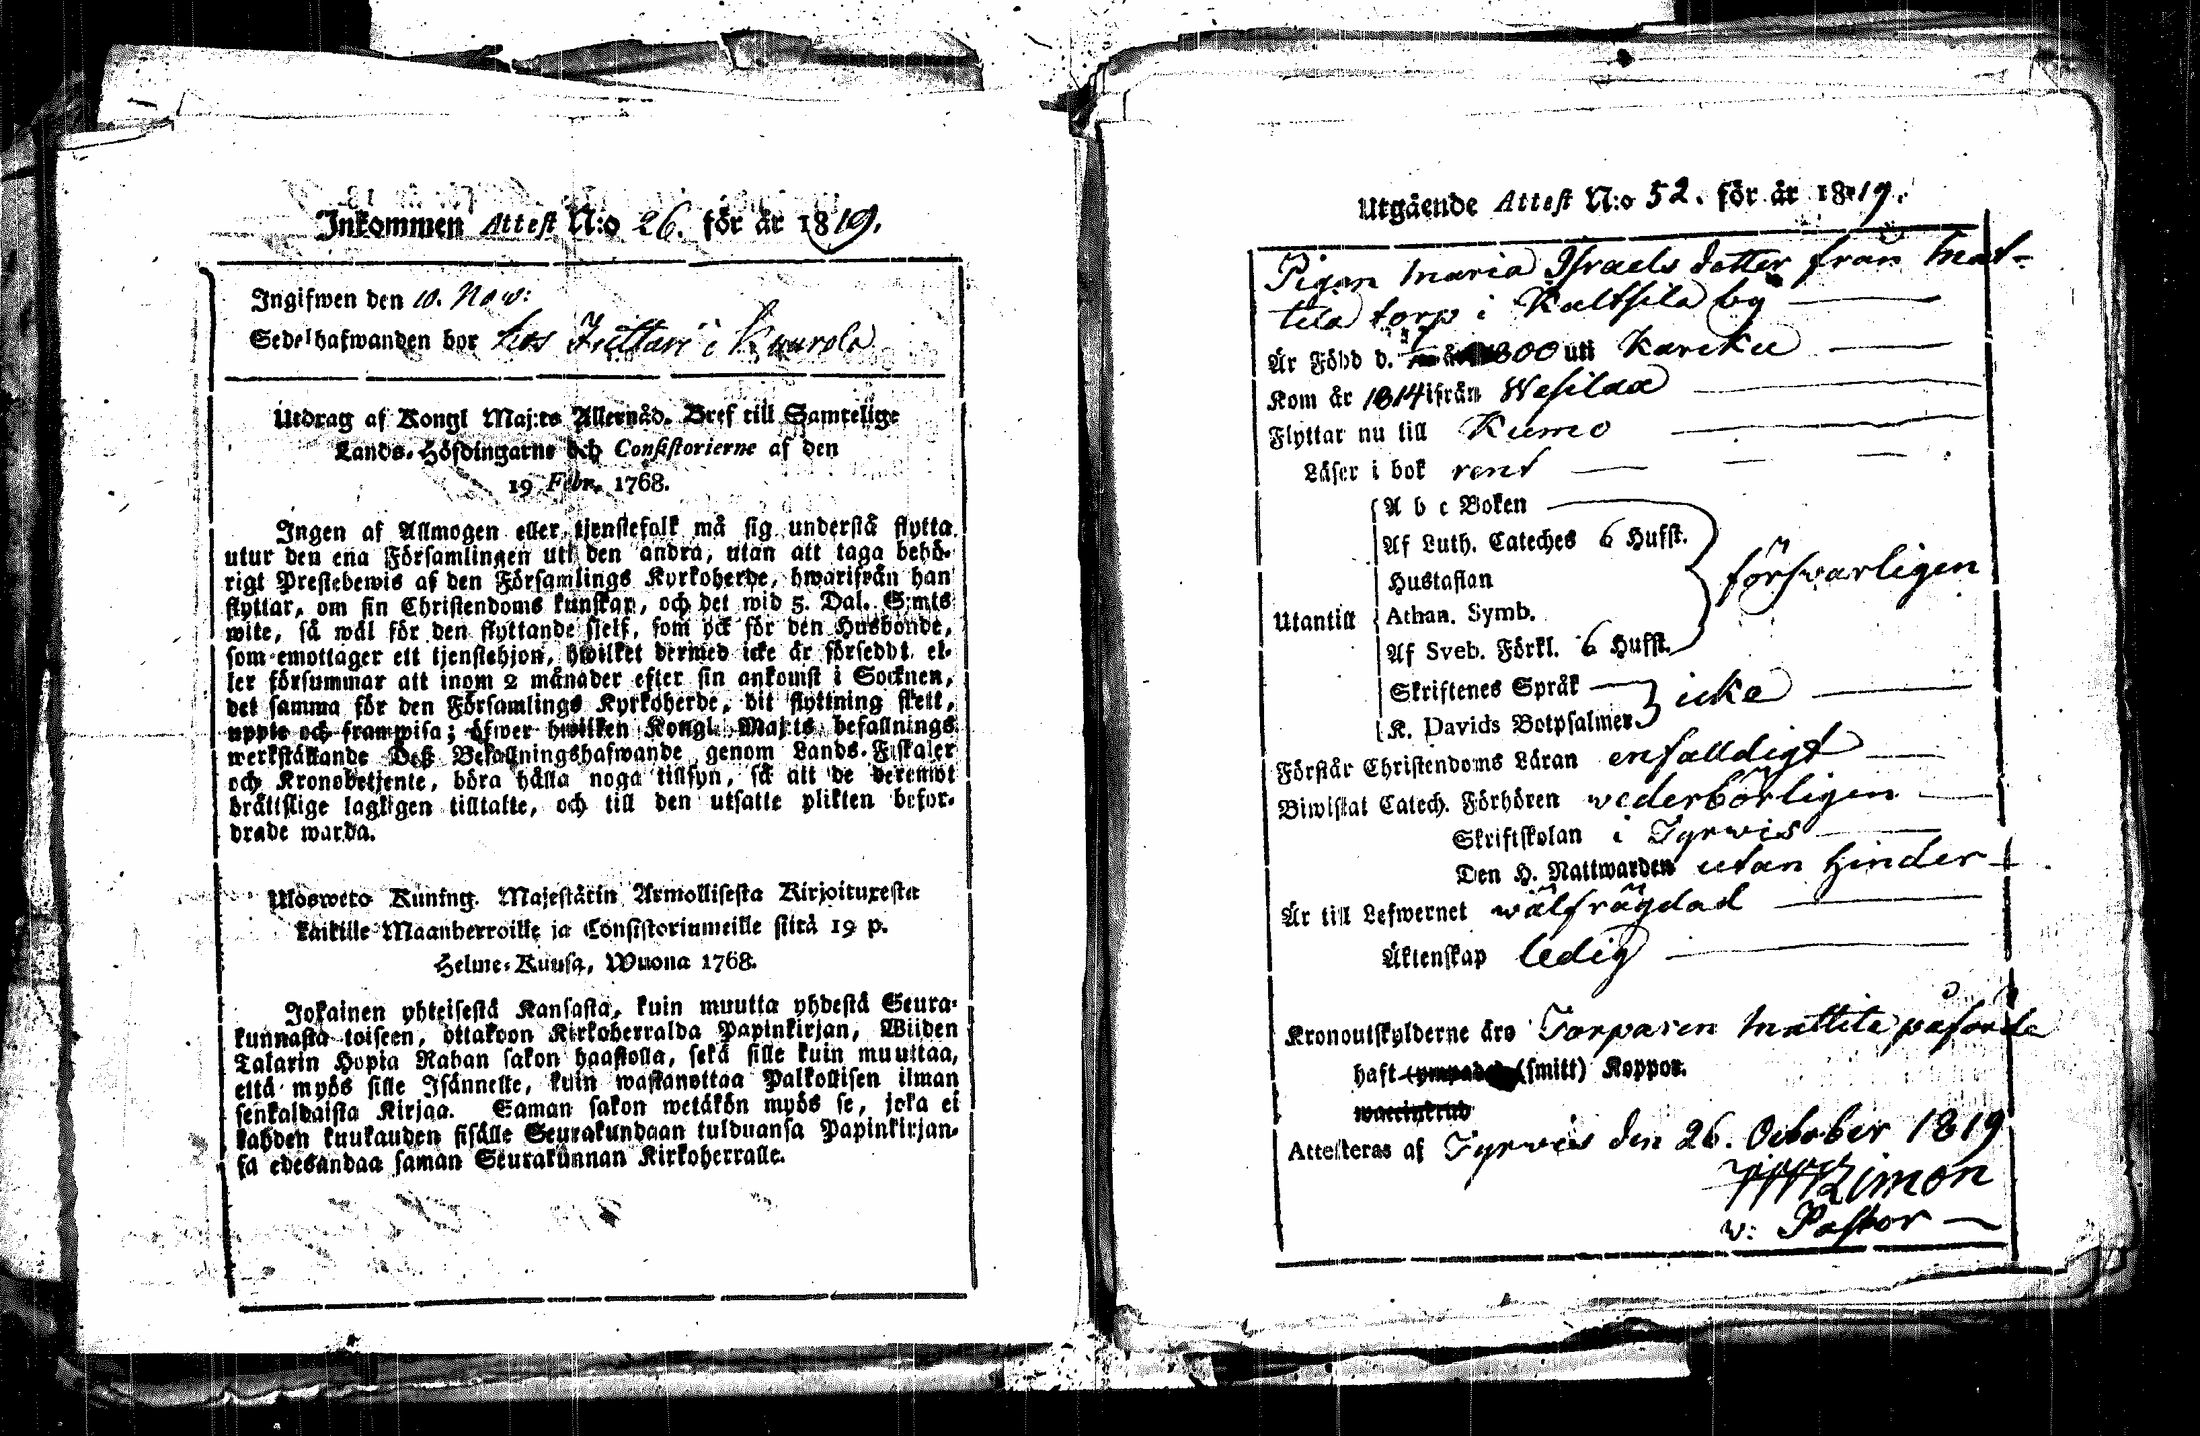 Inkommen Attest N:o 26. för år 1819.
Ingifwen den 10. Now:
Sedelhafwanden bor hos Juttari i Kaurola
Utdrag af Kongl Maj:ts Allernåd. Bref till Samtelige
Lands-Höfdingarne och Consistorierne af den
19 Febr. 1768.
Ingen af Allmogen eller tjenstefolk må sig understå flytta
utur den ena Församlingen uti den andra, utan att taga behö-
rigt Prestebewis af den Församlings Kyrkoherde, hwarifrån han
flyttar, om sin Christendoms kunskap, och det wid 5. Dal. S:mts
wite, så wäl för den flyttande sjelf, som ock för den Husbonde,
som emottager ett tjenstehjon, hwilket dermed icke är försedt, el-
ler försummar att inom 2 månader efter sin ankomst i Socknen,
det samma för den Församlings Kyrkoherde, dit flyttning skett,
uppte och framwisa; öfwer hwilken Kongl. Maj:ts befallnings
werkställande Deß Befallningshafwande genom Lands-Fiskaler
och Kronobetjente, böra hålla noga tillsyn, så att de deremot
bråttslige lagligen tilltalte, och till den utsatte plikten befor-
drade warda.
Uloswetø Kuning. Majestätin Armollisesta Kirjoituxesta
kaikille Maanherroille ja Consistoriumeille siitä 19 p.
Helme-Kuusa, Wuona 1768.
Jokainen yhteisestä Kansasta, kuin muutta yhdestä Seura-
kunnasta toiseen, ottakoon Kirkoherralda Papinkirjan, Wiiden
Talarin Hopia Rahan sakon haastolla, sekä sille kuin muuttaa,
että myös sille Isännelle, kuin wastanottaa Palkollisen ilman
senkaldaista Kirjaa. Saman sakon wetäkön myös se, joka ei
kahden kuukauden sisälle Seurakundaan tulduansa Papinkirjan-
sa edesandaa saman Seurakunnan Kirkoherralle.
Utgående Attest N:o 52. för år 1819.
Pigan Maria Israels dotter från Mat-
tila torp i Kaltsila by
Är Född d. 1800 uti Karcku
Kom år 1814 ifrån Wesilax
Flyttar nu till Kumo
Läser i bok rent
A b c Boken
Af Luth. Cateches 6 Hufst.
Hustaflan
försvarligen
Utantill Athan. Symb.
Af Sveb. Förkl. 6 Hufst.
Skriftenes Språk icke
K. Davids Botpsalmer
Förstår Christendoms Läran enfalldigt
Biwistat Catech. Förhören wederbörligen
Skriftskolan i Tyrwis
Den H. Nattwarden utan hinder
Är till Lefwernet wälfrägdad
Äktenskap ledig
Kronoutskylderne äro Torparen Mattila påförde
haft (smitt) Koppor.
waccinerad
Attesteras af Tyrwis den 26. October 1819
Limon
v: Pastor